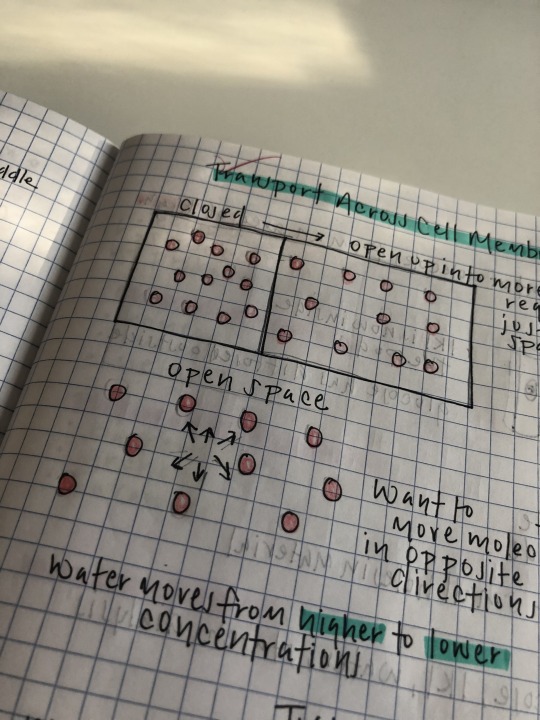 ddle.
Transport Across Cell Memb
closed
open up into more
req
jus
spa
open space
Want to
more moleo
in opposite
directions
Water moves from higher to lower
concentrations